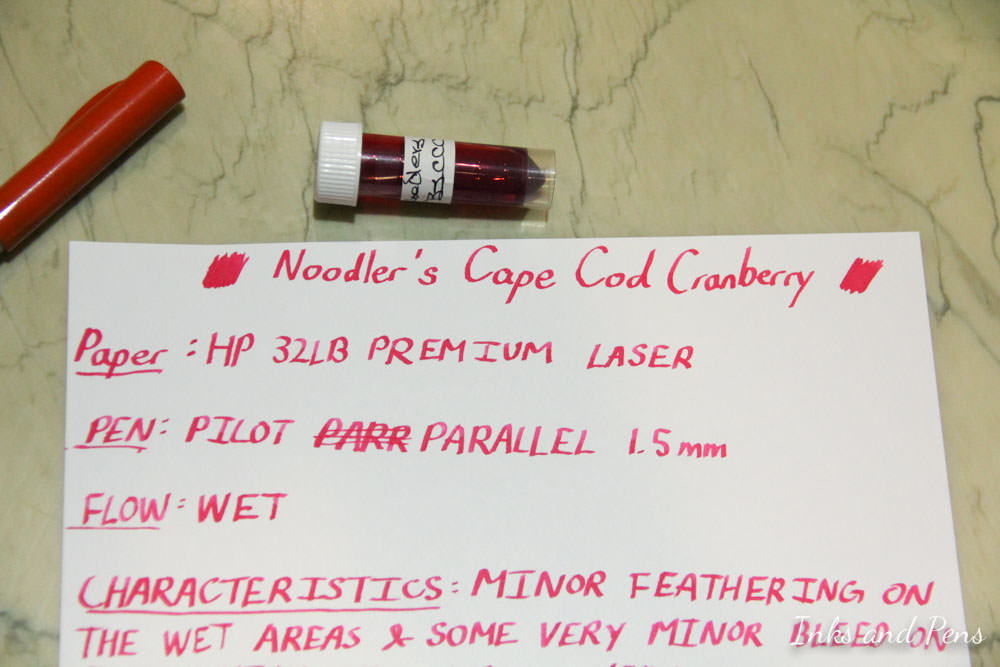 Noodlers
BSCCC
Noodler's Cape Cod Cranberry
Paper : HP 32LB PREMIUM LASER
PEN: PILOT PARR PARALLEL 1.5mm
FLOW: WET
CHARACTERISTICS: MINOR FEATHERING ON
THE WET AREAS & SOME VERY MINOR BLEED ON
Inks and Pens